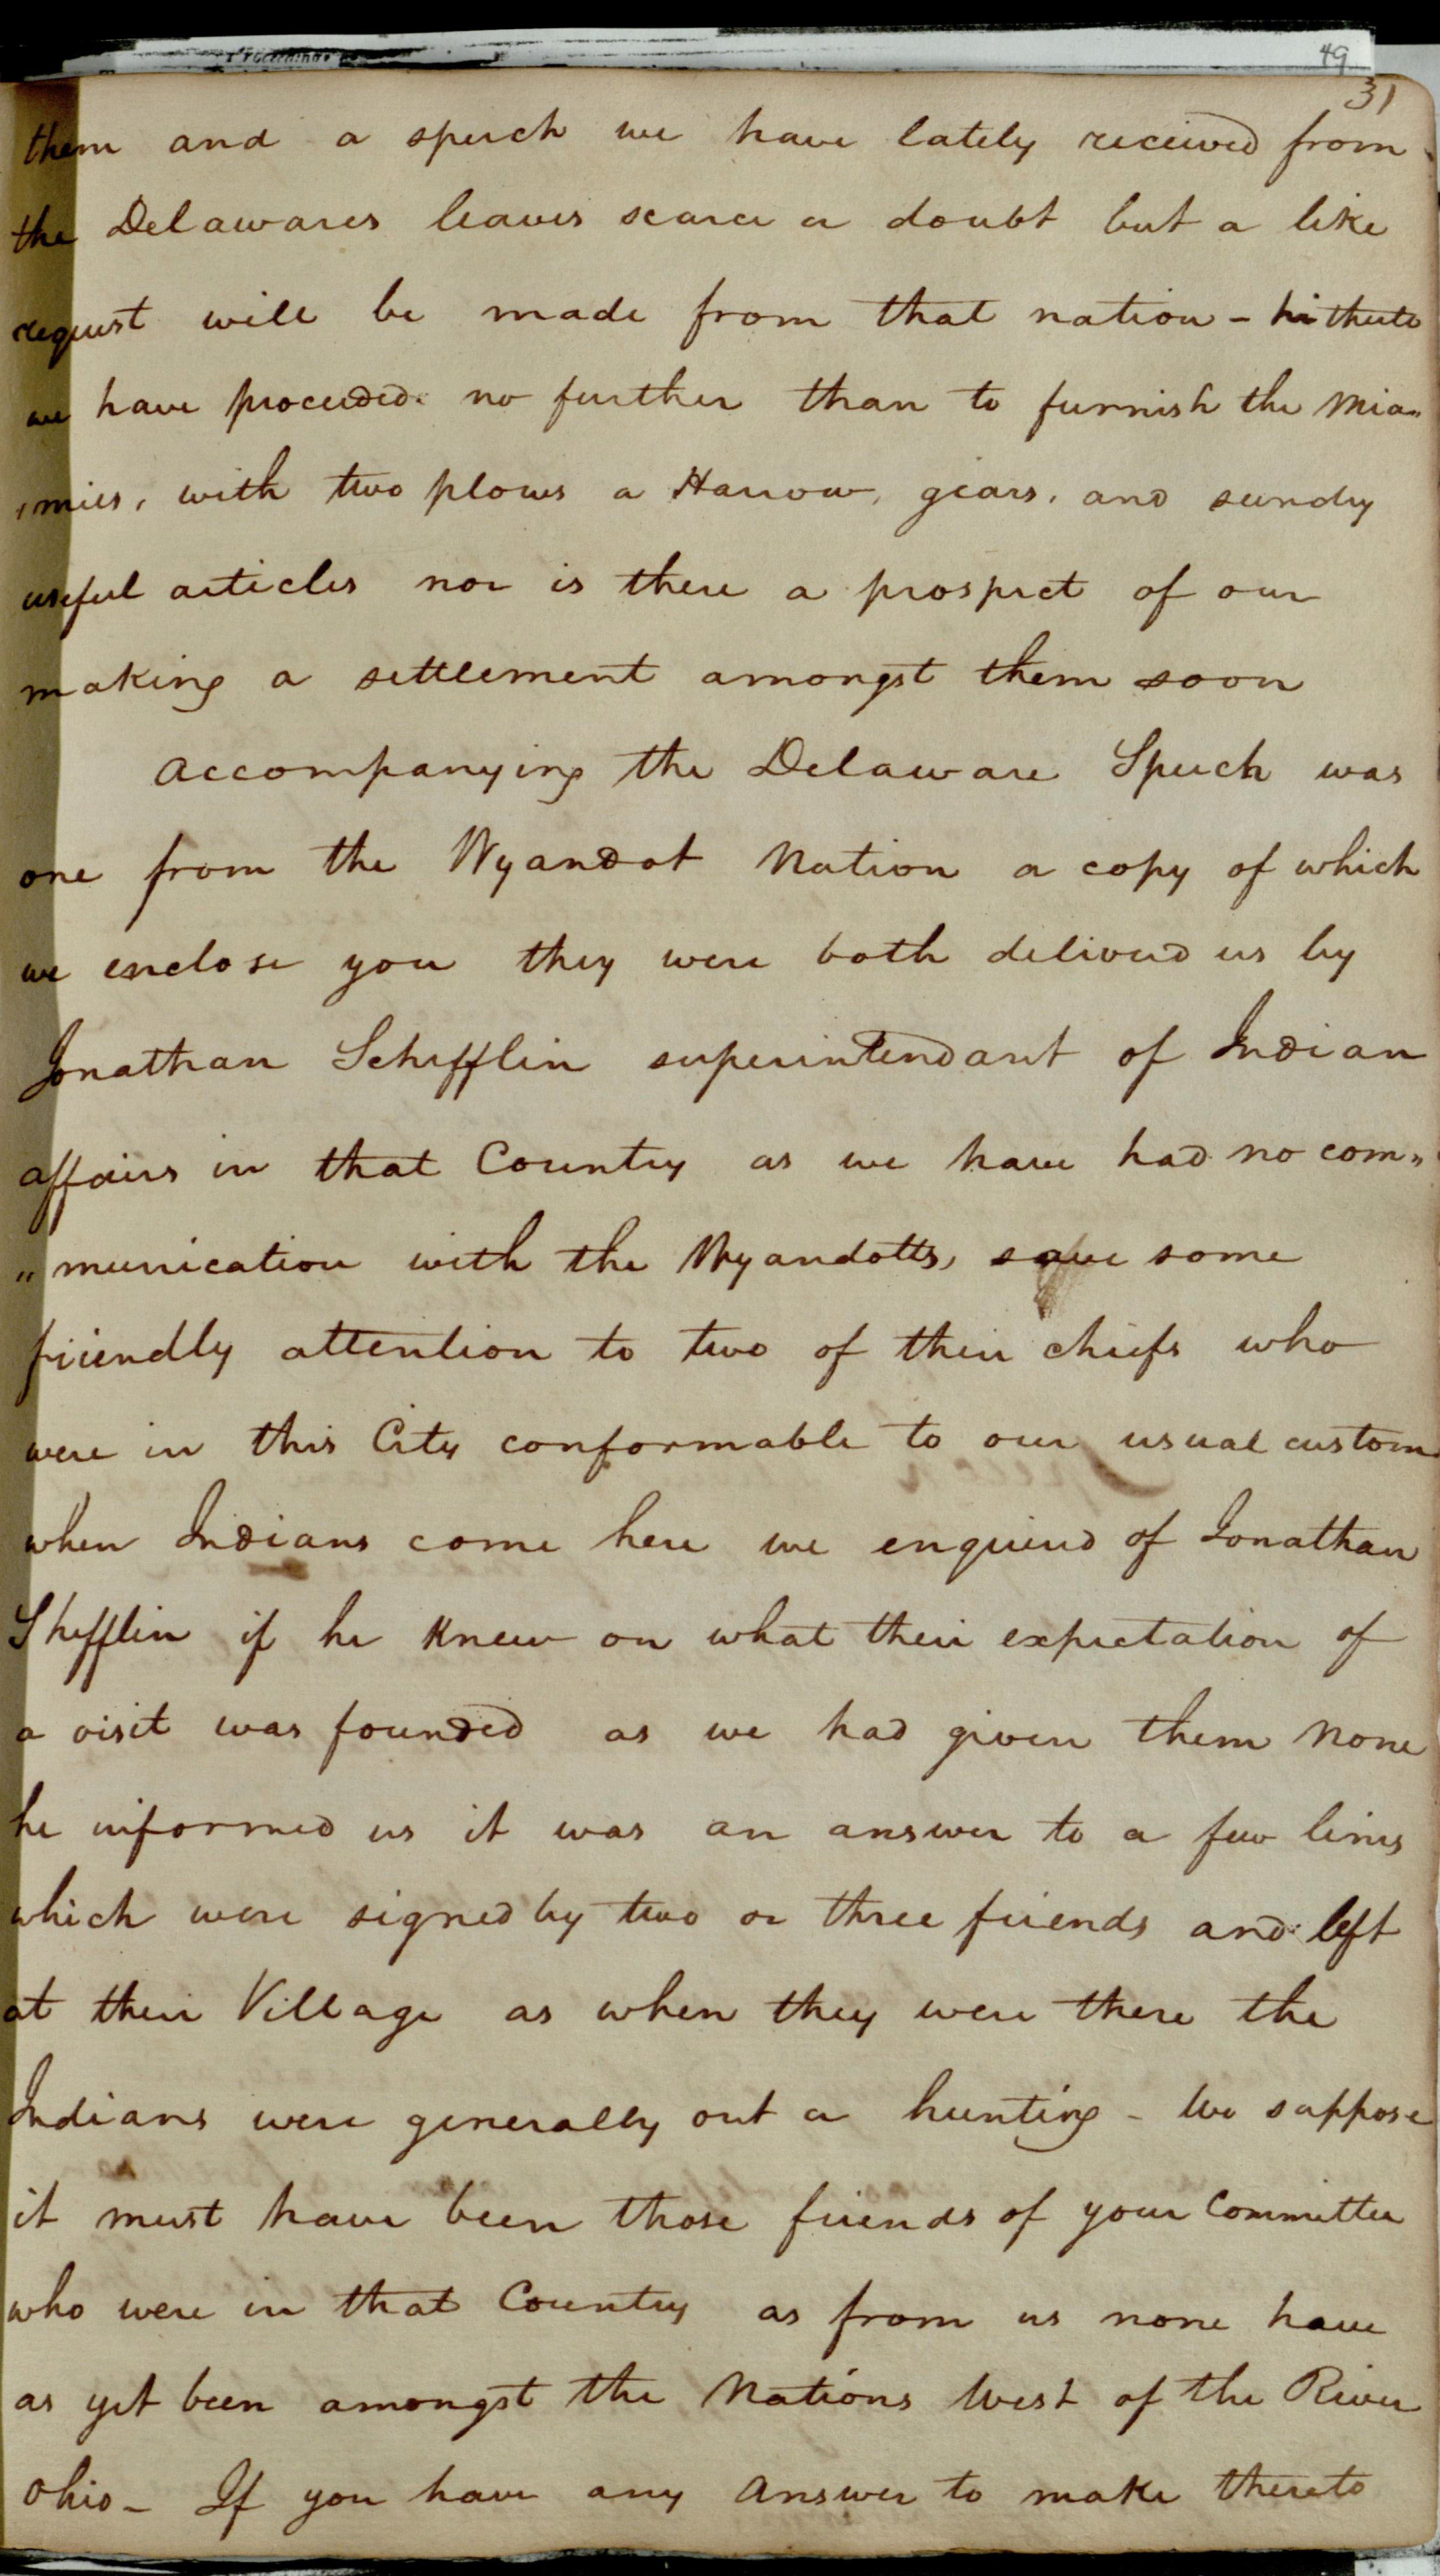 49
31
them and a speech we have lately received from
the Delawares leaves scarce a doubt but a like
request will be made from that nation - hitherto
we have proceeded no further than to furnish the Mia„
„mies, with two plows a Harrow, gears, and sundry
useful articles nor is there a prospect of our
making a settlement amongst them soon
accompanying the Delaware Speech was
one from the Wyandot Nation a copy of which
we enclose you they were both deliverd us by
Jonathan Schifflin superintendant of Indian
affairs in that Country as we have had no com„
„munication with the Wyandotts, save some
friendly attention to two of their chiefs who
were in this City conformable to our usual custom
when Indians come here we enquired of Jonathan
Shifflin if he knew on what their expectation of
a visit was founded as we had given them none
he informed us it was an answer to a few lines
which were signed by two or three friends and left
at their Village as when they were there the
Indians were generally out a hunting - We suppose
it must have been those friends of your Committee
who were in that Country as from us none have
as yet been amongst the Nations West of the River
Ohio - If you have any answer to make thereto